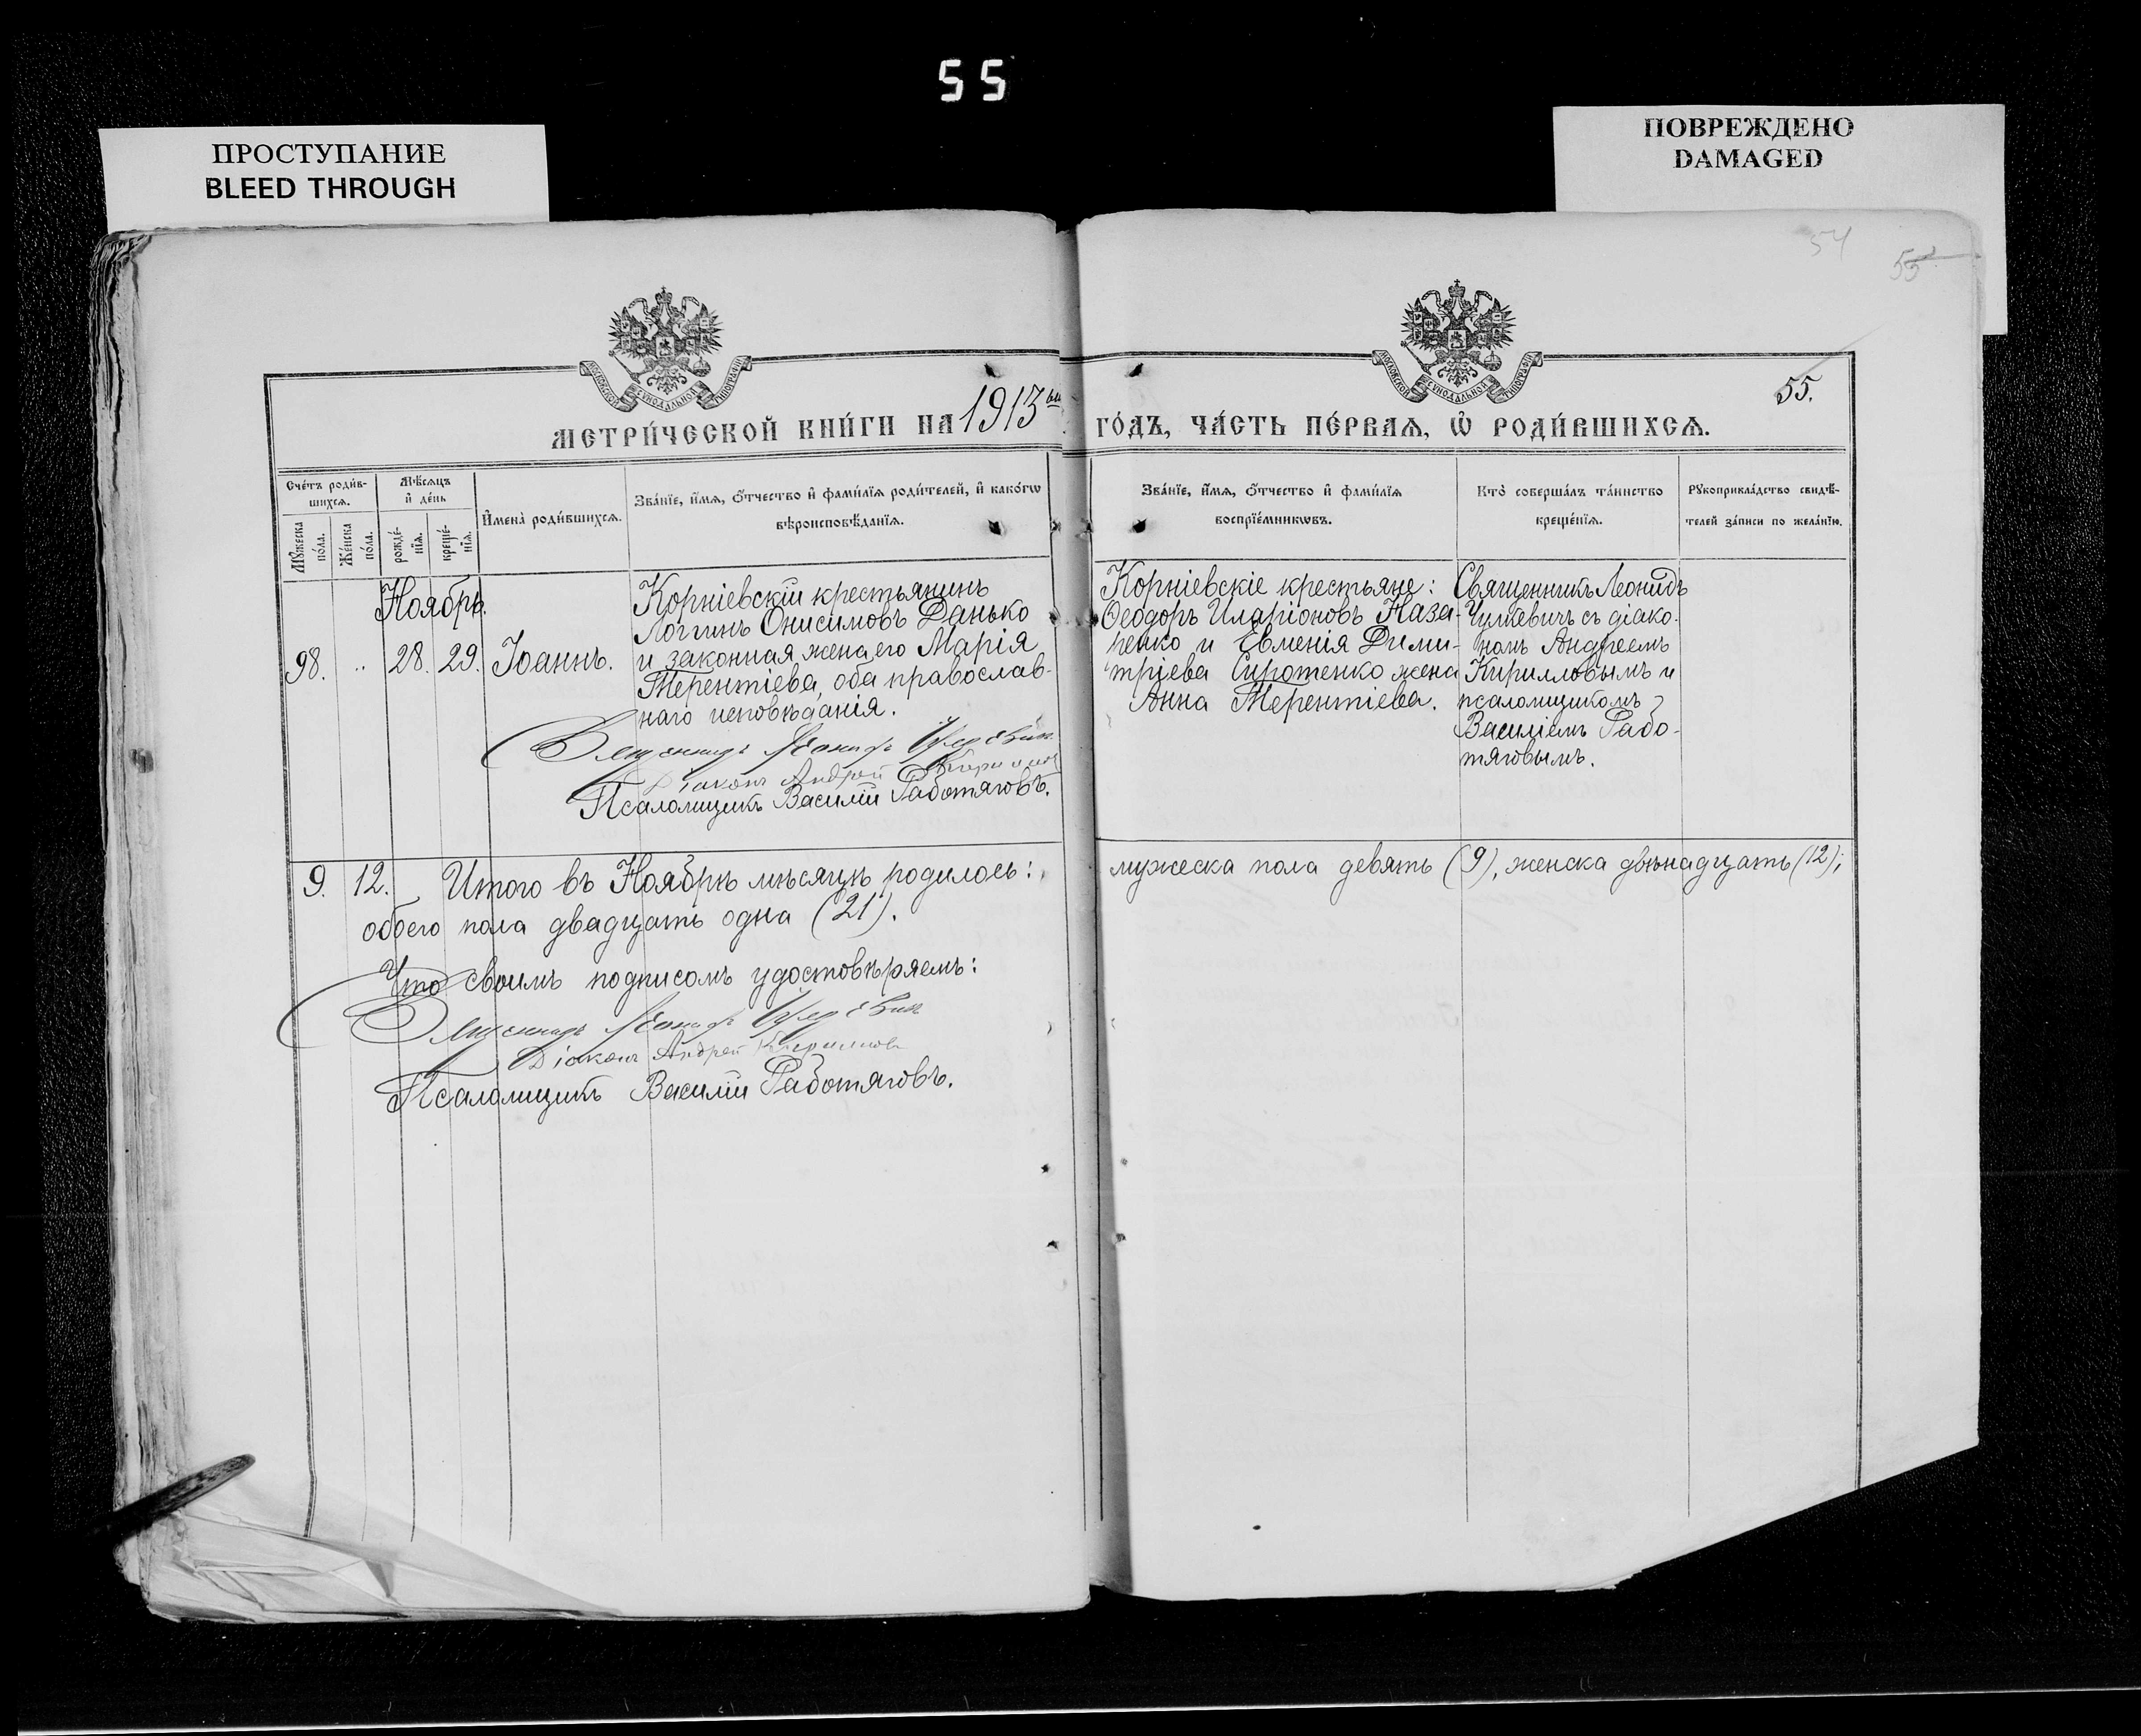 55
ПРОСТУПАНИЕ
BLEED THROUGH
ПОВРЕЖДЕНО
DAMAGED
54
55
55.
МОСКОВСКОЙ СУНОДАЛЬНОЙ ТИПОГРАФІИ
МОСКОВСКОЙ СУНОДАЛЬНОЙ ТИПОГРАФІИ
МЕТРИ́ЧЕСКОЙ КНИ́ГИ НА 1913ый ГО́ДЪ, ЧА́СТЬ ПЕ́РВАѦ, Ѡ҆ РОДИ́ВШИХСѦ.
Сче́тъ роди́в-
шихсѧ.
Мꙋжеска
по́ла.
Же́нска
по́ла.
Мѣ́сѧцъ
и҆ де́нь
рожде́-
нїѧ.
креще́-
нїѧ.
И҆мена̀ роди́вшихсѧ.
Зва́нїе, и҆́мѧ, ѻ҆́тчество и҆ фами́лїѧ роди́телей, и҆ како́гѡ
вѣроисповѣ́данїѧ.
Зва́нїе, и҆́мѧ, ѻ҆́тчество и҆ фами́лїѧ
воспрїе́мникѡвъ.
Кто̀ соверша́лъ та́инство
креще́нїѧ.
Рꙋкоприкла́дство свидѣ́-
телей за́писи по жела́нїю.
Ноябрь.
98. .. 28. 29. Іоаннъ.
Корніевскій крестьянинъ
Логгинъ Онисимовъ Данько
и законная жена его Марія
Терентіева, оба православ-
наго исповѣданія.
Корніевскіе крестьяне:
Ѳеодоръ Иларіоновъ Наза-
ренко и Евменія Дими-
тріева Сиротенко жена
Анна Терентіева.
Священникъ Леонидъ
Чулкевичъ съ діако-
номъ Андреемъ
Кирилловымъ и
псаломщикомъ
Василіемъ Рабо-
тяговымъ.
Священникъ Леонидъ
Діаконъ Андрей Кирилловъ
Псаломщикъ Василій Работяговъ.
9. 12. Итого въ Ноябрѣ мѣсяцѣ родилось: мужеска пола девять (9), женска двѣнадцать (12);
обоего пола двадцать одна (21).
Что своимъ подписомъ удостовѣряемъ:
Священникъ Леонидъ
Діаконъ Андрей Кирилловъ
Псаломщикъ Василій Работяговъ.